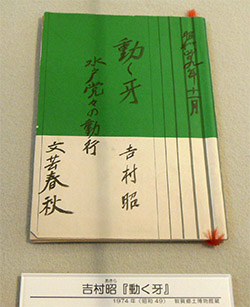 昭和四九年十一月
動く牙
水戸党々の動行
吉村昭
文芸春秋
あきら
吉村昭『動く牙』
1974年（昭和49） 敦賀郷土博物館蔵